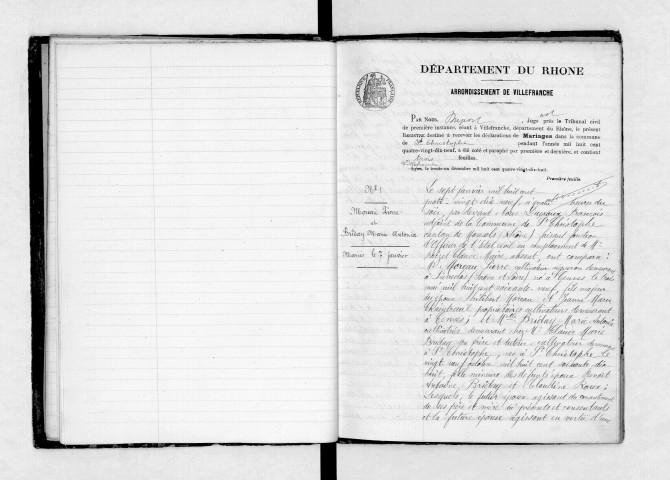 DÉPARTEMENT DU RHONE
ARRONDISSEMENT DE VILLEFRANCHE
PAR NOUS, Juge près le Tribunal civil
de première instance, séant à Villefranche, département du Rhône, le présent
REGISTRE destiné à recevoir les déclarations de Mariages dans la commune
de St Christophe pendant l'année mil huit cent
quatre-vingt-dix-neuf, a été coté et paraphé par première et dernière, et contient
trois feuilles.
le trente-un décembre mil huit cent quatre-vingt-dix-huit.
Première feuille
N° 1
Moreau Pierre
et
Briday Marie Antonia
Mariés le 7 janvier
Le sept janvier mil huit cent
quatre-vingt dix neuf, à quatre heures du
soir, par devant Nous François
adjoint de la Commune de St Christophe
canton de Monsols (Rhône) faisant fonction
d'Officier de l'Etat civil en remplacement de Mr
Claude Maire absent, ont comparu :
Mr Moreau Pierre cultivateur vigneron demeurant
à (Saône et Loire) né à le trois
mai mil huit cent soixante-neuf, fils majeur
des époux Philibert Moreau et Jeanne Marie
propriétaires cultivateurs demeurant
à ; et Mlle Briday Marie Antonia
cultivatrice demeurant chez Mr Claude Marie
Briday son frère et tuteur cultivateur demeurant
à St Christophe, née à St Christophe le
vingt neuf octobre mil huit cent soixante dix
huit, fille mineure des défunts époux Benoît
Antoine Briday et Claudine ;
Lesquels, le futur époux agissant du consentement
de ses père et mère ici présents et consentants
et la future épouse agissant en vertu d'une